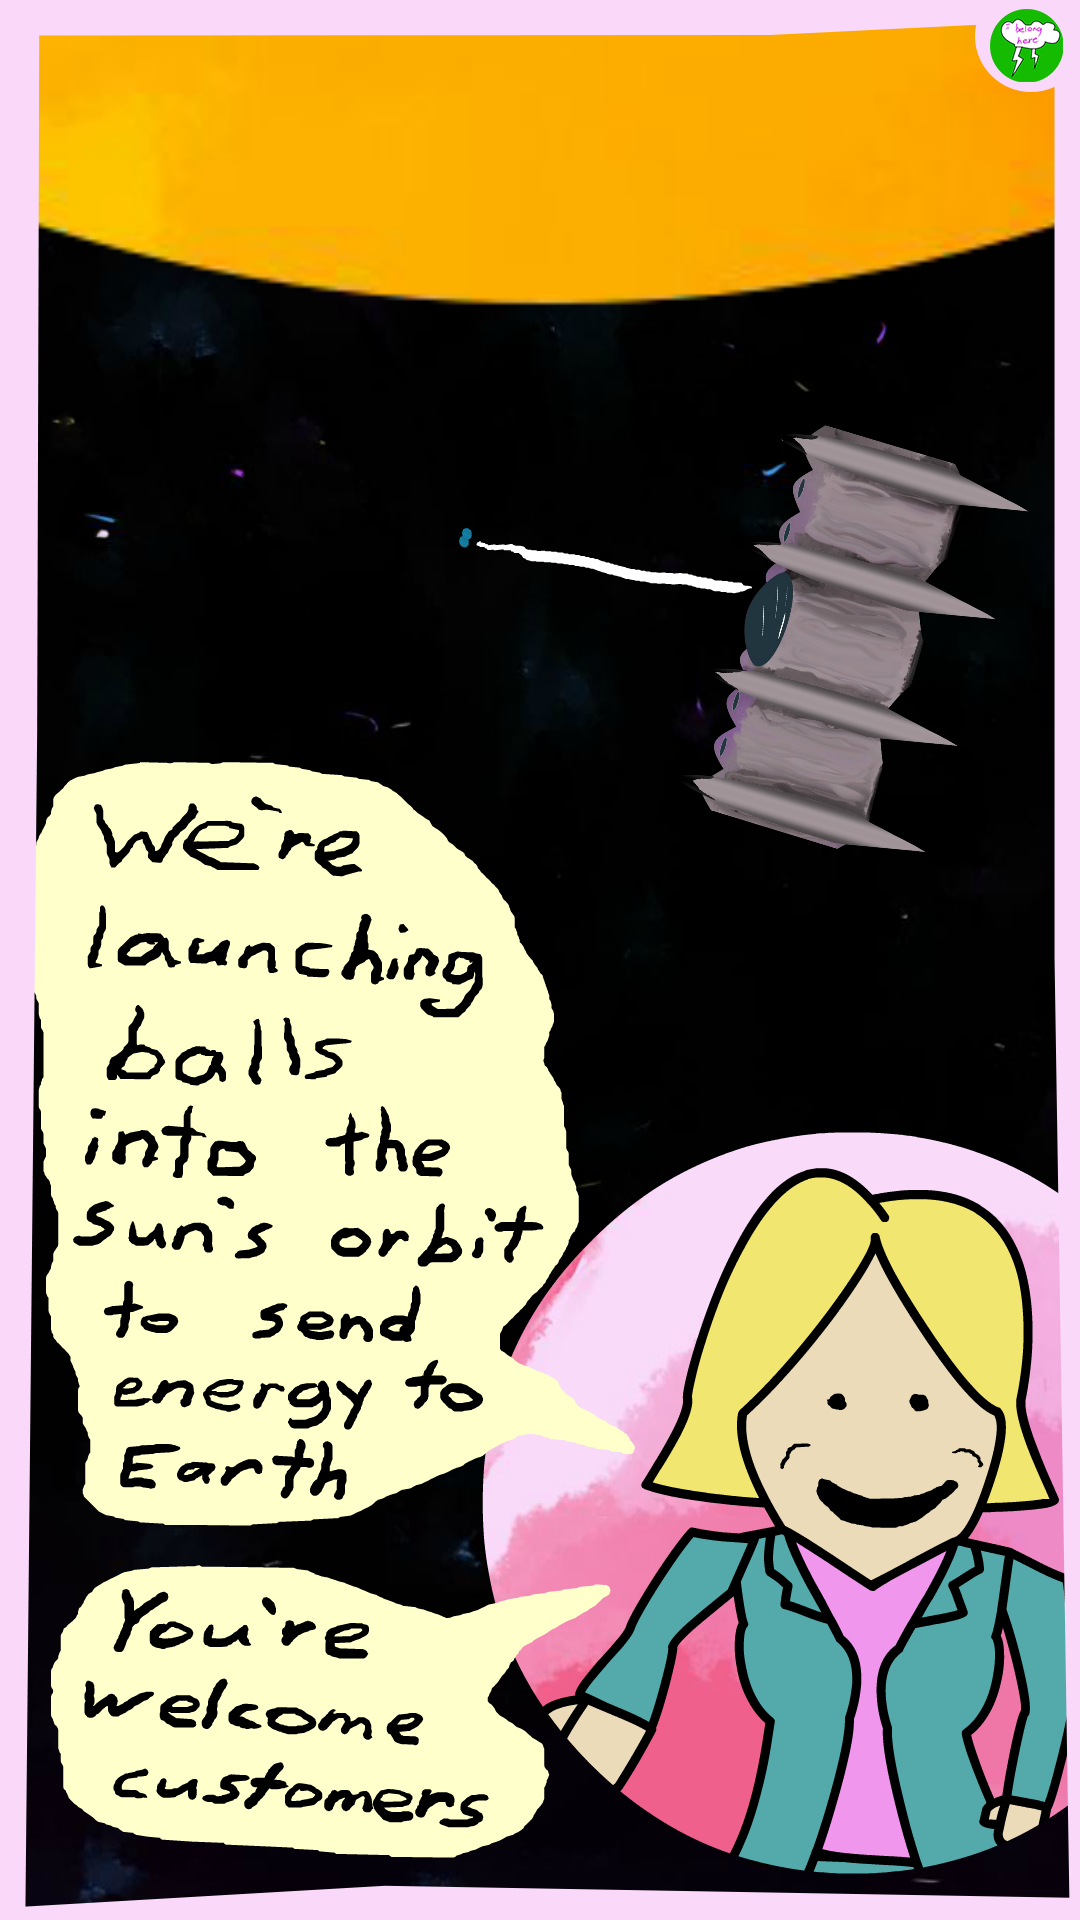 belong
here
We're
launching
balls
into the
sun's orbit
to send
energy to
Earth
You're
welcome
customers